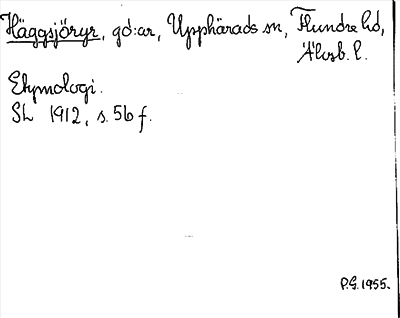 Häggsjöryr, gd:ar, Upphärads sn, Flundre hd,
Älvsb. l.
Etymologi.
SL 1912, s. 56 f.
P.G. 1955.